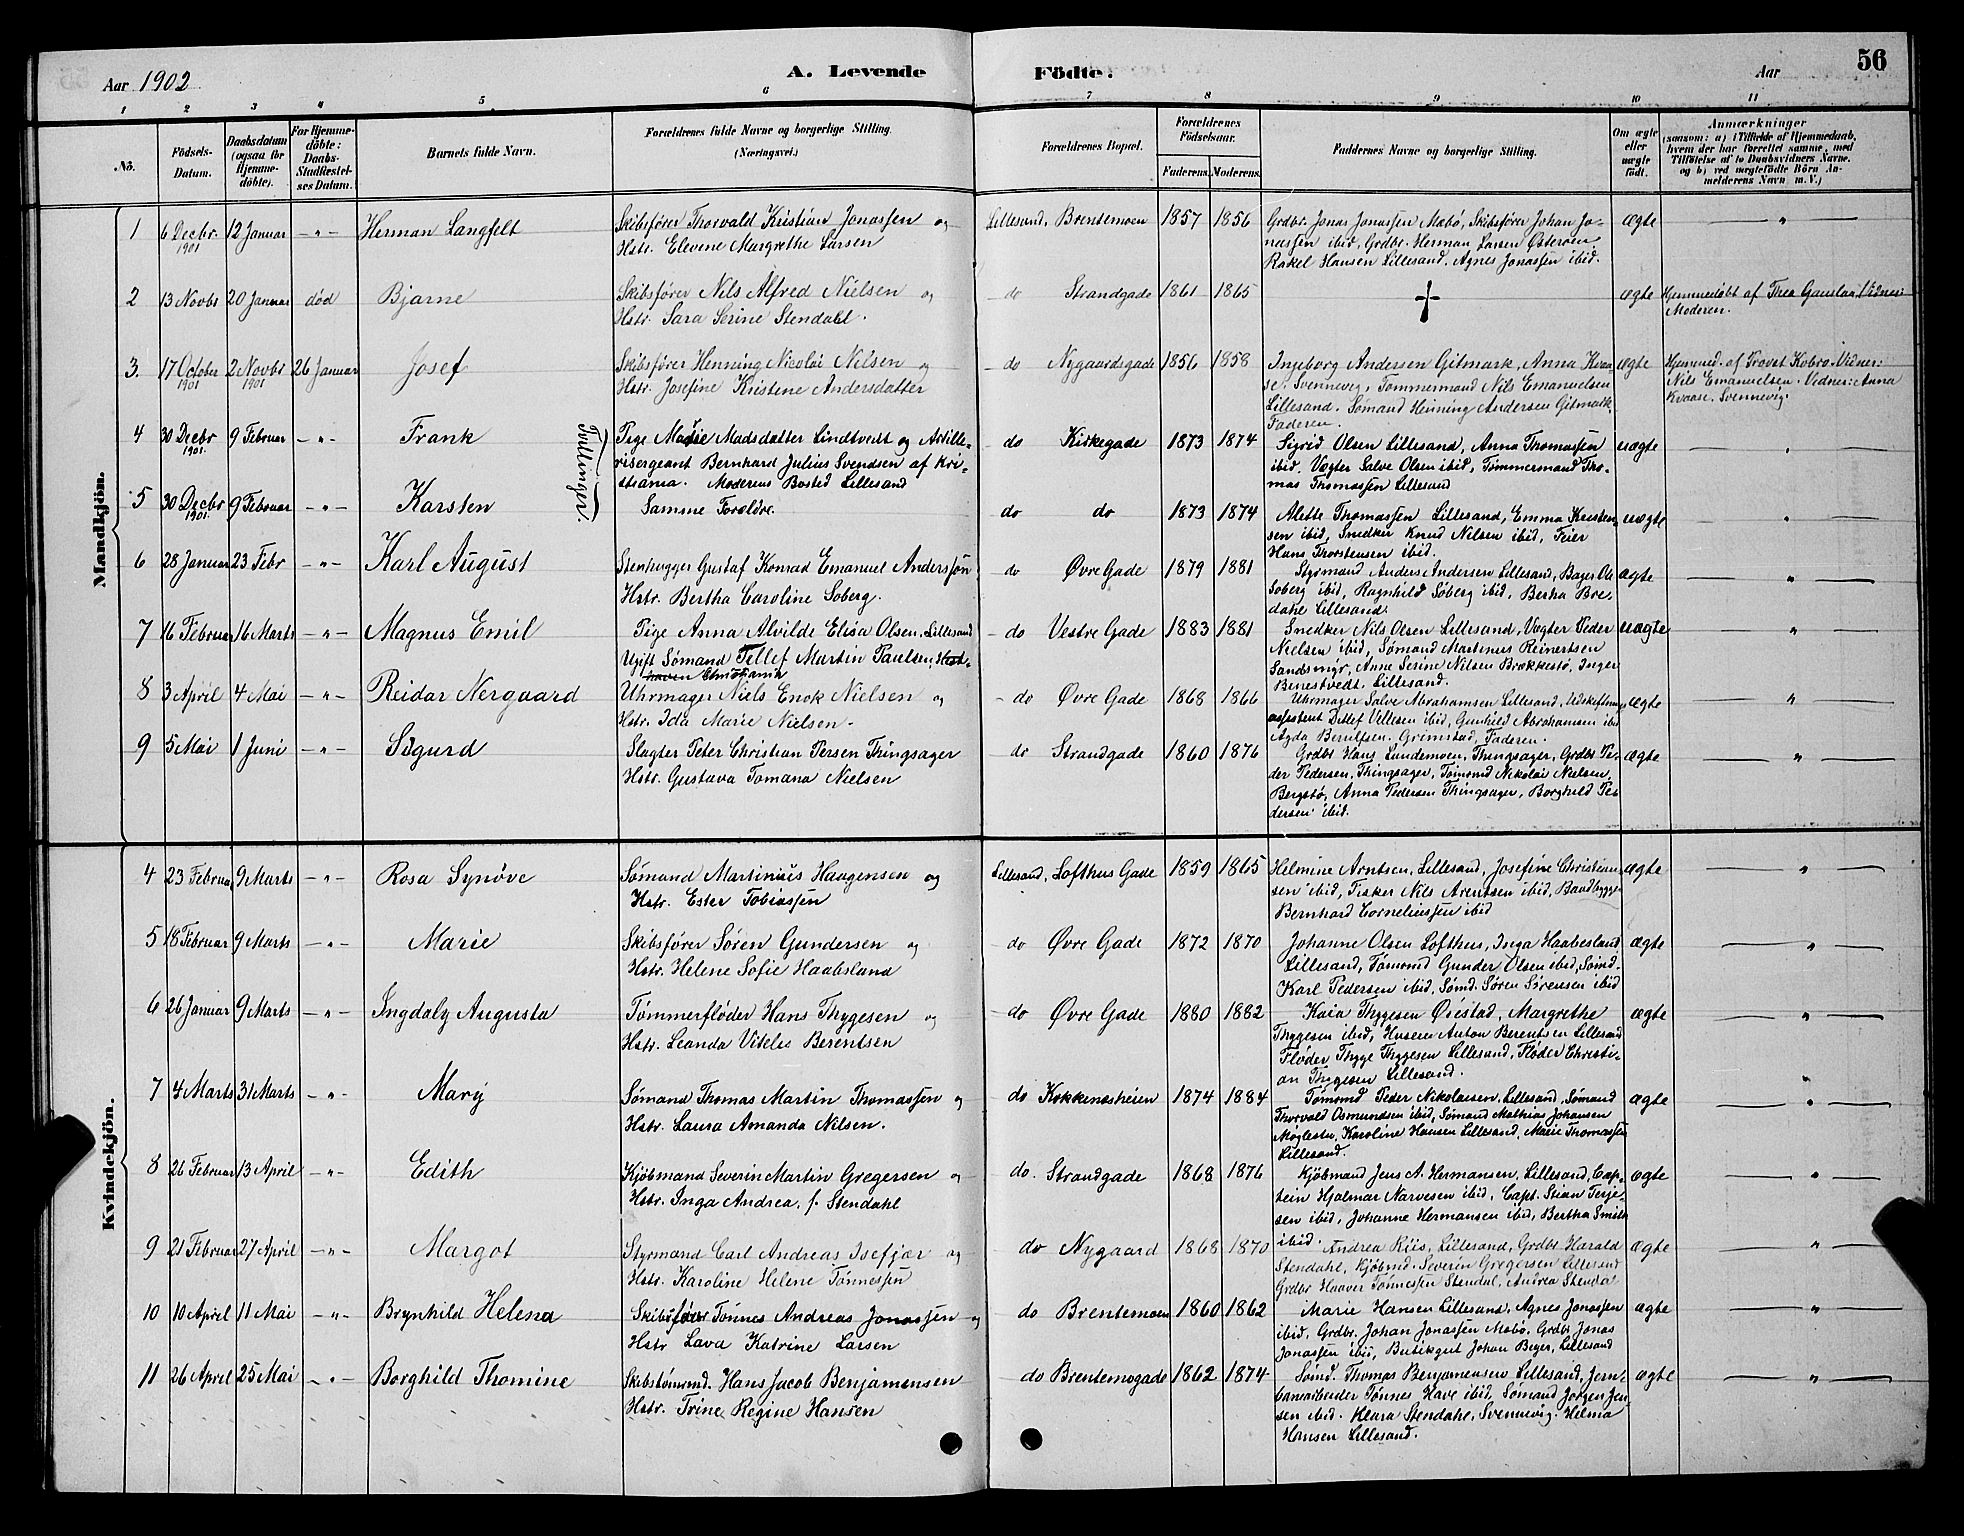 Aar 1902
A. Levende
Födte.
Aar
56
1 2 3 4 5 6 7 8 9 10 11
No.
Födsels-Datum.
Daabsdatum (ogsaa for Hjemmedöbte).
For Hjemmedöbte: Daabs-Stadfæstelses Datum.
Barnets fulde Navn.
Forældrenes fulde Navne og borgerlige Stilling. (Næringsvei.)
Forældrenes Bopæl.
Forældrenes Födselsaar.
Faderens. Moderens.
Faddernes Navne og borgerlige Stilling.
Om ægte eller uægte födt.
Anmærkninger
(saasom: a) i Tilfælde af Hjemmedaab,
hvem der har forrettet samme, med
Tilföielse af to Daabsvidners Navne.
og b) ved uægtefödte Börn An-
melderens Navn m. V.)
Mandkjön.
1 6 Decbr 1901 12 Januar — " — Herman Langfelt Skibsfører Thorvald Kristian Jonassen og
Hstr. Elevene Margrethe Larsen
Lillesand, Brentemoen 1857 1856 Grdbr. Jonas Jonassen Mæbø, Skibsfører Johan Jo-
nassen ibid, Grdbr. Herman Larsen Østerøen,
Rakel Hansen Lillesand. Agnes Jonassen ibid.
ægte — " —
2 13 Novbr 20 Januar død Bjarne Skibsfører Nils Alfred Nielsen og
Hstr. Sara Serine Stendahl.
do Strandgade 1861 1865 ægte Hjemmedøbt af Thea Gauslaa, Vidnes:
Moderen.
3. 17 October 1901 2 Novbr 1901 26 Januar Josef Skibsfører Henning Nicolai Nilsen og
Hstr. Josefine Kristene Andersdatter
do Nygaardsgade 1856 1858 Ingeborg Andersen Gitmark, Anna Kvaa-
se. Svennevig, Tømmermand Nils Emanuelsen
Lillesand. Sømand Henning Andersen Gitmark
Faderen.
ægte Hjemmed. af Provst Kobro. Vidnes:
Nils Emanuelsen. Vidnes: Anna
Kvaase. Svennevig.
4 30 Decbr 1901. 9 Februar — " — Frank Tvillinger. Pige Madsdatter Lindtvedt og Artille-
risergeant Bernhard Julius Svendsen af Kri-
stiania. Moderens Bosted Lillesand
do Kirkegade 1873 1874 Sigrid Olsen Lillesand, Anna Thomassen
ibid. Vægter Salve Olsen ibid, Tømmermand Tho-
mas Thomassen Lillesand
uægte
5 30 Decbr 1901. 9 Februar — " — Karsten Samme Forældre.
do do 1873 1874 Alette Thomassen Lillesand, Emma Kristen-
sen ibid, Snedker Knud Nilsen ibid, Feier
Hans Thorstensen ibid.
uægte
6 28 Januar 23 Febr — " — Karl August Stenhugger Gustaf Konrad Emanuel Andersson
Hstr. Bertha Caroline Soberg.
do Øvre Gade 1879 1881 Styrmand Anders Andersen Lillesand, Bager Ole
Soberg ibid, Ragnhild Søberg ibid, Bertha Bre-
dahl Lillesand.
ægte — " —
7 16 Februar 16 Marts — " — Magnus Emil Pige Anna Alvilde Elisa Olsen, Lillesand
Ugift Sømand Tellef Martin Paulsen, Hest-
haven Christiania
do Vestre Gade 1883 1881 Snedker Nils Olsen Lillesand, Vægter Peder
Nielsen ibid, Sømand Martinus Reinertsen
Sandsmyr, Anne Serine Nilsen Brækkestø, Inger
Benestvedt, Lillesand.
uægte — " —
8 3 April 4 Mai — " — Reidar Nergaard Uhrmager Niels Enok Nielsen og
Hstr. Ida Marie Nielsen.
do Øvre Gade 1868 1866 Uhrmager Salve Abrahamsen Lillesand, Udskiftnings-
assistent Detlef Vellesen ibid, Gunhild Abrahamsen ibid
Agda Berntsen. Grimstad, Faderen.
ægte — " —
9 5 Mai 1 Juni — " — Sigurd Slagter Peter Christian Persen Thingsager
Hstr. Gustava Tomana Nielsen
do Strandgade 1860 1876 Grdbr Hans Lundemoen, Thingsager, Grdbr Pe-
der Pedersen, Thingsager, Tømmd Nikolai Nielsen,
Bergstø, Anna Pedersen Thingsager, Borghild Pe-
dersen ibid.
ægte — " —
Kvindekjön.
4 23 Februar 9 Marts — " — Rosa Synøve Sømand Martinius Haagensen og
Hstr. Ester Tobiassen
Lillesand, Lofthus Gade 1859 1865 Helmine Arntsen, Lillesand, Josefine Christian-
sen ibid, Fisker Nils Arentsen ibid, Baadbygger
Bernhard Corneliussen ibid
ægte — " —
5 18 Februar 9 Marts — " — Marie Skibsfører Søren Gundersen og
Hstr. Helene Sofie Haabsland
do Øvre Gade 1872 1870 Johanne Olsen Lofthus, Inga Haabesland
Lillesand, Tømmd Gunder Olsen ibid, Sømd.
Karl Pedersen ibid, Sømd. Søren Sørensen ibid
ægte — " —
6 26 Januar 9 Marts — " — Ingdaly Augusta Tømmerfløder Hans Thygesen og
Hstr. Leanda Viteles Berentsen
do Øvre Gade 1880 1882 Kaia Thygesen Øiestad, Margrethe
Thygesen ibid, Huseier Anton Berentsen Lillesand
Fløder Thyge Thygesen Lillesand, Fløder Christi-
an Thygesen Lillesand.
ægte — " —
7 4 Marts 31 Marts — " — Mary Sømand Thomas Martin Thomassen og
Hstr. Laura Amanda Nilsen.
do Kokkenesheien 1874 1884 Tømmd Peder Nikolaisen, Lillesand, Sømand
Thorvald Osmundsen ibid, Sømand Mathias Johansen
Møglestu, Karoline Hansen Lillesand, Marie Thomassen
Lillesand.
ægte — " —
8 26 Februar 13 April — " — Edith Kjøbmand Severin Martin Gregersen og
Hstr. Inga Andrea, f. Stendahl
do. Strandgade 1868 1876 Kjøbmand Jens A. Hermansen, Lillesand, Cap-
tein Hjalmar Narvesen ibid, Capt. Stian Terje-
sen ibid, Johanne Hermansen ibid, Bertha Smith
ibid.
ægte — " —
9 21 Februar 27 April — " — Margot Styrmand Carl Andreas Isefjær og
Hstr. Karoline Helene Tønnessen
do Nygaard 1868 1870 Andrea Riis, Lillesand, Grdbr Harald
Stendahl, Kjøbmd. Severin Gregersen Lillesand
Grdbr Haaver Tønnessen Stendal, Andrea Stendal
ægte — " —
10 10 April 11 Mai — " — Brynhild Helena Skibsfører Tønnes Andreas Jonassen og
Hstr Lava Katrine Larsen
do Brentemoen 1860 1862 Marie Hansen Lillesand, Agnes Jonassen
ibid, Grdbr. Johan Jonassen Mæbø, Grdbr Jonas
Jonassen ibid, Butikgut Johan Beyer, Lillesand
ægte — " —
11 26 April 25 Mai — " — Borghild Thomine Skibstømmd. Hans Jacob Benjamensen
Hstr. Trine Regine Hansen
do Brentemogade 1862 1874 Sømd. Thomas Benjamensen Lillesand, Jern-
banearbeider Tønnes Have ibid, Sømand Jørgen Jen-
sen ibid. Klara Stendahl, Svennevig. Helma
Hansen Lillesand.
ægte — " —